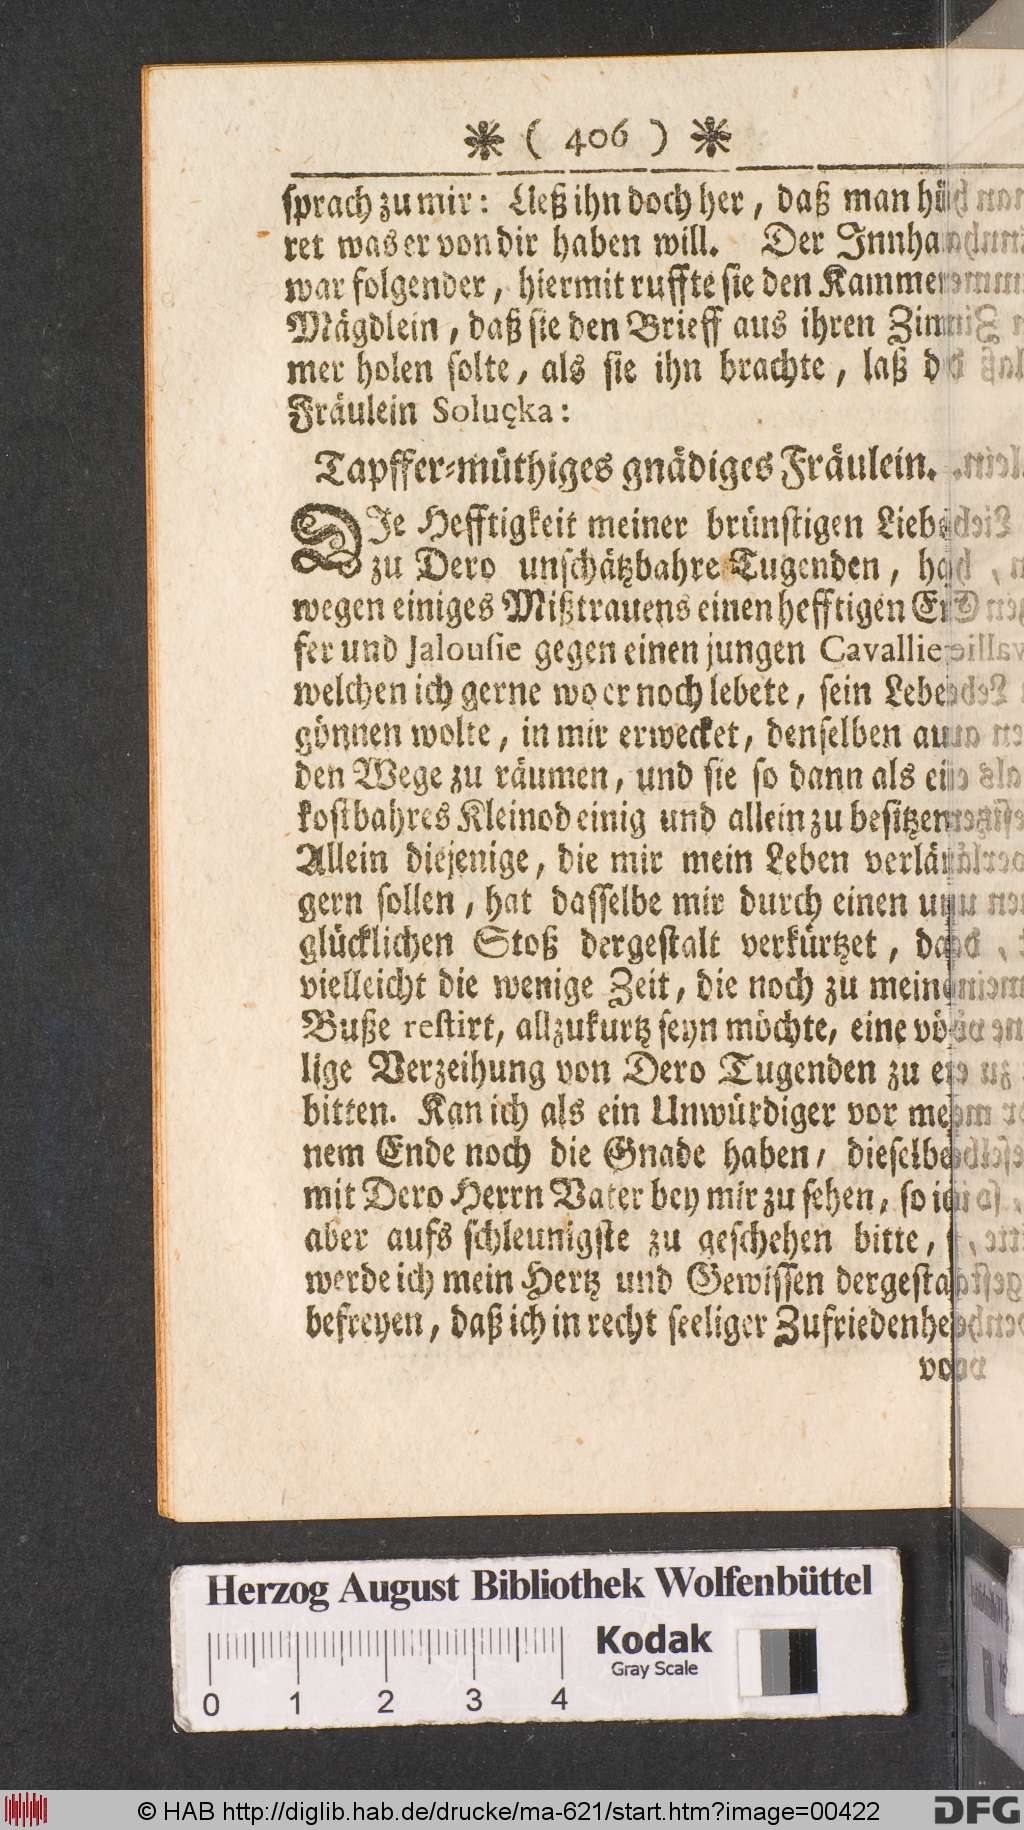 * ( 406 ) *
sprach zu mir: Ließ ihn doch her, daß man hö-
ret was er von dir haben will. Der Innha
war folgender, hiermit ruffte sie den Kammer-
Mägdlein, daß sie den Brieff aus ihren Zim-
mer holen solte, als sie ihn brachte, laß d
Fräulein Soluçka:
Tapffer-müthiges gnädiges Fräulein.
DIe Hefftigkeit meiner brünstigen Liebe
zu Dero unschätzbahre Tugenden, ha
wegen einiges Mißtrauens einen hefftigen Ei-
fer und Jalousie gegen einen jungen Cavallie
welchen ich gerne wo er noch lebete, sein Lebe
gönnen wolte, in mir erwecket, denselben au
den Wege zu räumen, und sie so dann als ein
kostbahres Kleinod einig und allein zu besitzen
Allein diejenige, die mir mein Leben verlän-
gern sollen, hat dasselbe mir durch einen un-
glücklichen Stoß dergestalt verkürtzet, da
vielleicht die wenige Zeit, die noch zu meine
Buße restirt, allzukurtz seyn möchte, eine völ-
lige Verzeihung von Dero Tugenden zu er-
bitten. Kan ich als ein Unwürdiger vor mei-
nem Ende noch die Gnade haben, dieselbe
mit Dero Herrn Vater bey mir zu sehen, so ich
aber aufs schleunigste zu geschehen bitte,
werde ich mein Hertz und Gewissen dergesta
befreyen, daß ich in recht seeliger Zufriedenhe
vo
Herzog August Bibliothek Wolfenbüttel
Kodak
Gray Scale
0 1 2 3 4
© HAB http://diglib.hab.de/drucke/ma-621/start.htm?image=00422
DFG